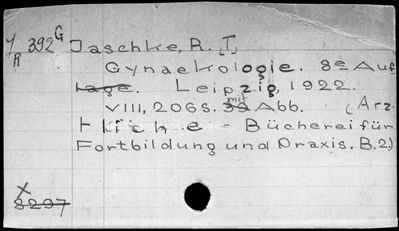 Y/R 392 G Jaschke, R. [T]
Gynaekologie. 8e Auf
lage. Leipzig, 1922.
VIII, 206S. mit 39 Abb. (Arz
tliche Bücherei für
Fortbildung und Praxis. B.2)
X
8297